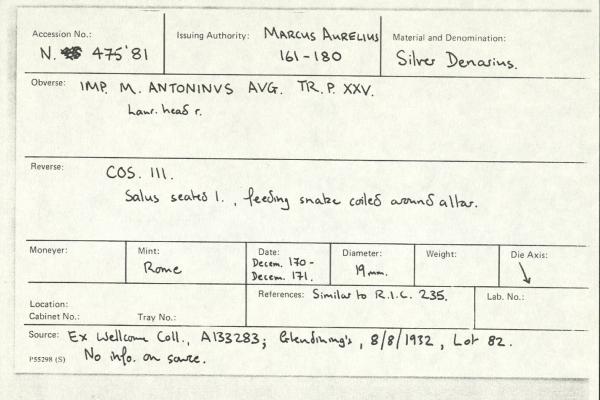 Accession No.: N. 475'81
Issuing Authority: MARCUS AURELIUS
161-180
Material and Denomination: Silver Denarius.
Obverse: IMP. M. ANTONINVS AVG. TR. P. XXV.
Laur. head r.
Reverse: COS. III.
Salus seated l., feeding snake coiled around altar.
Moneyer:
Mint: Rome
Date: Decem. 170 -
Decem. 171.
Diameter: 19 mm.
Weight:
Die Axis: ↘
Location:
Cabinet No.: Tray No.:
References: Similar to R.I.C. 235.
Lab. No.:
Source: Ex Wellcome Coll., A133283; Glendining's, 8/8/1932, Lot 82.
P55298 (S) No info. on source.